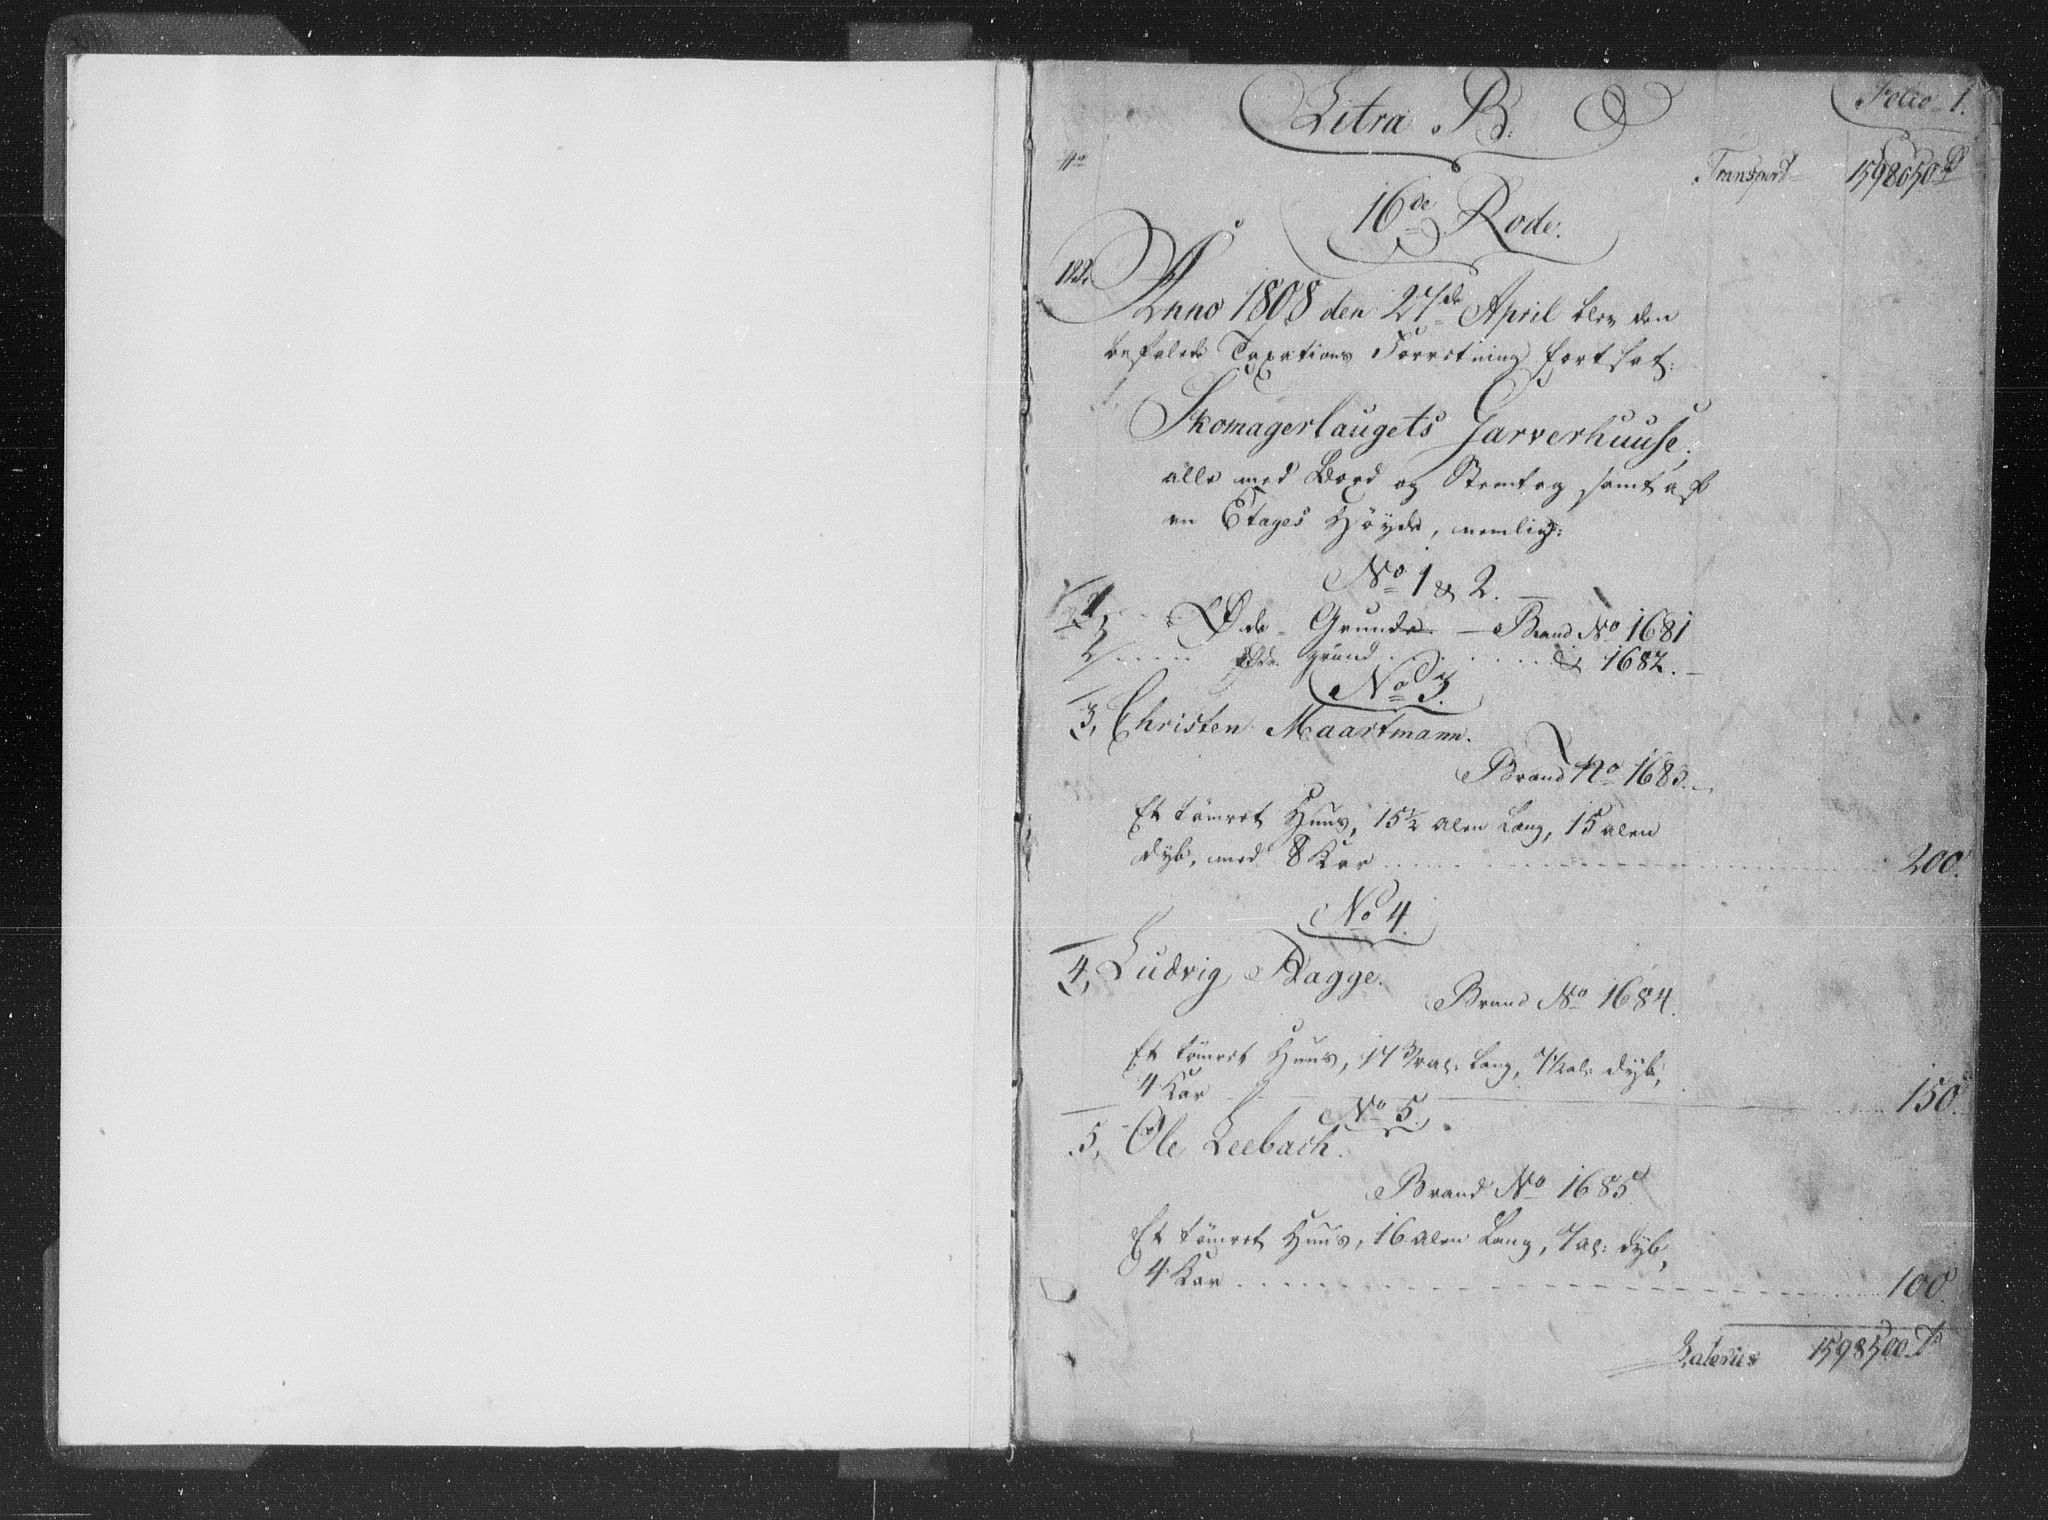 Litra B.
Folio 1.
No
Transport 1598050
16de Rode.
Anno 1808 den 27de April blev den
befalede Taxations Forretning fortsat:
Skomagerlaugets Garverhuuse,
alle med Bord og Steentag samt af
en Etages Höyde, nemlig:
No 1 & 2.
1 Øde Grunde Brand No 1681
2 Øde grund 1682.
No 3.
3, Christen Maartmann.
Brand No 1683.
Et tömret Huus, 15 1/2 alen Lang, 15 alen
dyb, med 8 Kar 200.
No 4.
4, Ludvig Dagge.
Brand No 1684.
Et tömret Huus, 17 3/4 al: Lang, 7 1/2 al: dyb,
4 Kar 150.
No 5.
5, Ole Leebach.
Brand No 1685
Et tömret Huus, 16 alen Lang, 7 al: dyb,
4 Kar 100.
Laterus 1598500